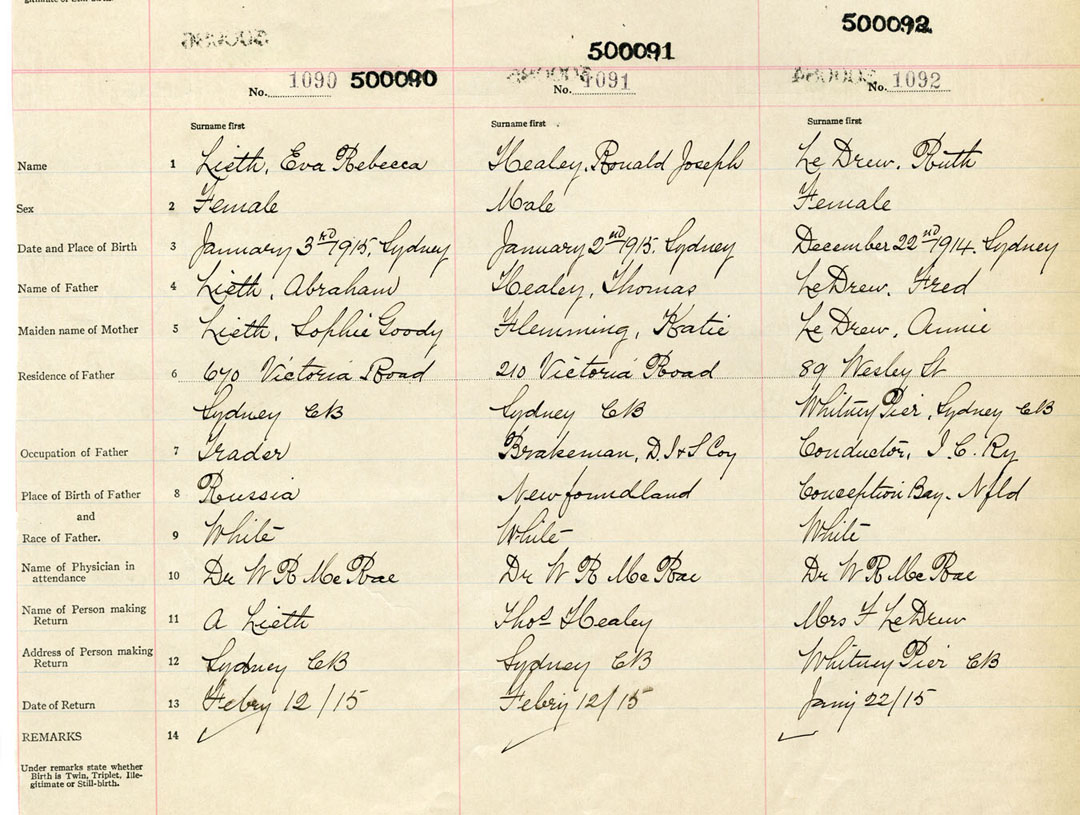 gitimate or Still-birth.
500092
500091
No. 1090 500090
No. 1091
No. 1092
Surname first
Surname first
Surname first
Name 1 Lieth, Eva Rebecca
Healey, Ronald Joseph
Le Drew, Ruth
Sex 2 Female
Male
Female
Date and Place of Birth 3 January 3rd 1915, Sydney
January 2nd 1915, Sydney
December 22nd 1914. Sydney
Name of Father 4 Lieth, Abraham
Healey, Thomas
LeDrew, Fred
Maiden name of Mother 5 Lieth, Sophie Goody
Flemming, Katie
Le Drew, Annie
Residence of Father 6 670 Victoria Road
210 Victoria Road
89 Wesley St
Sydney CB
Sydney CB
Whitney Pier, Sydney CB
Occupation of Father 7 Trader
Brakeman, D. I & S Coy
Conductor, I. C. Ry
Place of Birth of Father 8 Russia
Newfoundland
Conception Bay - Nfld
and
Race of Father. 9 White
White
White
Name of Physician in
attendance 10 Dr W R McRae
Dr W R McRae
Dr W R McRae
Name of Person making
Return 11 A Lieth
Thos Healey
Mrs F LeDrew
Address of Person making
Return 12 Sydney CB
Sydney CB
Whitney Pier CB
Date of Return 13 Febry 12/15
Febry 12/15
Jany 22/15
REMARKS 14
Under remarks state whether
Birth is Twin, Triplet, Ille-
gitimate or Still-birth.